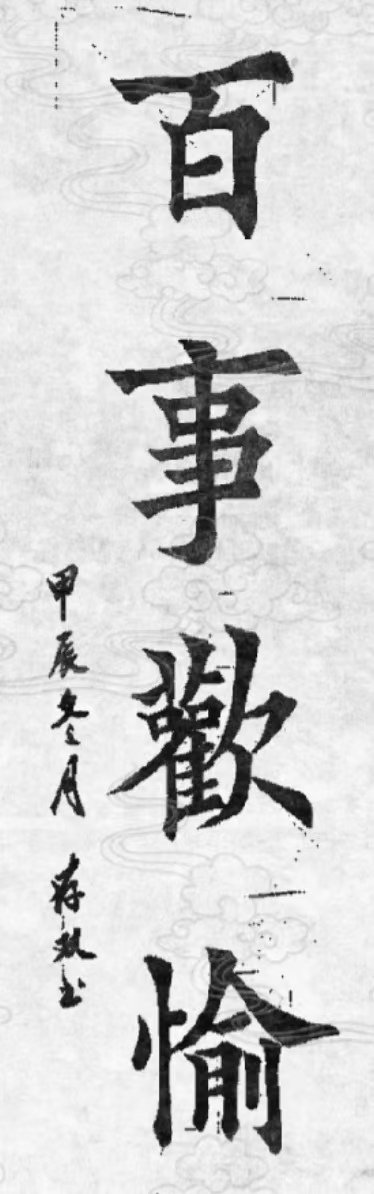 百事歡愉
甲辰冬月 蔣書